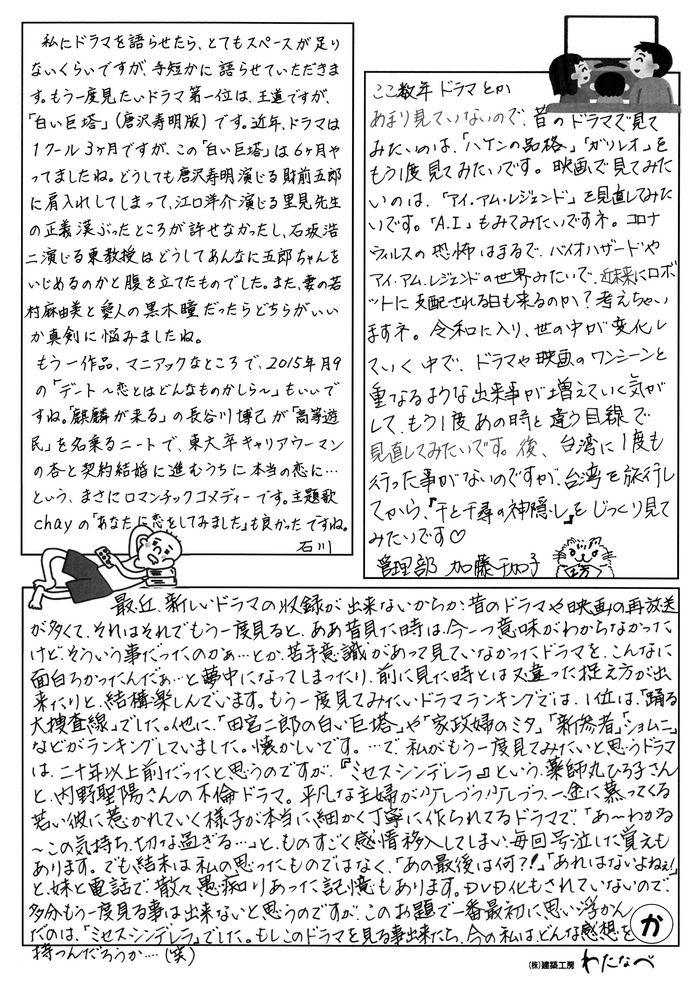 私にドラマを語らせたら、とてもスペースが足り
ないくらいですが、手短かに語らせていただきま
す。もう一度見たいドラマ第一位は、王道ですが、
「白い巨塔」(唐沢寿明版)です。近年、ドラマは
1クール3ヶ月ですが、この「白い巨塔」は6ヶ月や
ってましたね。どうしても唐沢寿明演じる財前五郎
に肩入れしてしまって、江口洋介演じる里見先生
の正義漢ぶったところが許せなかったし、石坂浩
二演じる東教授はどうしてあんなに五郎ちゃんを
いじめるのかと腹を立てたものでした。また、妻の若
村麻由美と愛人の黒木瞳だったらどちらがいい
か真剣に悩みましたね。
もう一作品、マニアックなところで、2015年月9
の「デート〜恋とはどんなものかしら〜」もいいで
すね。「麒麟が来る」の長谷川博己が「高等遊
民」を名乗るニートで、東大卒キャリアウーマン
の杏と契約結婚に進むうちに本当の恋に…
という、まさにロマンチックコメディーです。主題歌
chayの「あなたに恋をしてみました」も良かったですね。
石川
ここ数年ドラマとか
あまり見ていないので、昔のドラマで見て
みたいのは、「ハケンの品格」「ガリレオ」を
もう1度見てみたいです。映画で見てみた
いのは、「アイ・アム・レジェンド」を見直してみた
いです。「A.I」もみてみたいですネ。コロナ
ウィルスの恐怖はまるで、バイオハザードや
アイ・アム・レジェンドの世界みたいで、近未来にロボ
ットに支配される日も来るのか?考えちゃい
ますネ。令和に入り、世の中が変化し
ていく中で、ドラマや映画のワンシーンと
重なるような出来事が増えていく気が
して、もう1度あの時と違う目線で
見直してみたいです。後、台湾に1度も
行った事がないのですが、台湾を旅行し
てから、『千と千尋の神隠し』をじっくり見て
みたいです♡
管理部 加藤千加子
最近、新しいドラマの収録が出来ないからか、昔のドラマや映画の再放送
が多くて、それはそれでもう一度見ると、ああ昔見た時は、今一つ意味がわからなかった
けど、そういう事だったのかぁ…とか、苦手意識があって見ていなかったドラマを、こんなに
面白ろかったんだぁ…と夢中になってしまったり、前に見た時とは又違った捉え方が出
来たりと、結構楽しんでいます。もう一度見てみたいドラマランキングでは、1位は、「踊る
大捜査線」でした。他に、「田宮二郎の白い巨塔」や「家政婦のミタ」「新参者」「ショムニ」
などがランキングしていました。懐かしいです。…で私がもう一度見てみたいと思うドラマ
は、二十年以上前だったと思うのですが、『ミセスシンデレラ』という、薬師丸ひろ子さん
と、内野聖陽さんの不倫ドラマ。平凡な主婦が少しづつ少しづつ、一途に慕ってくる
若い彼に惹かれていく様子が本当に細かく丁寧に作られてるドラマで、「あ〜わかる
〜この気持ち、切な過ぎる…」と、ものすごく感情移入してしまい、毎回号泣した覚えも
あります。でも、結末は私の思ったものではなく、「あの最後は何?!」「あれはないよねぇ!」
と、妹と電話で散々愚痴りあった記憶もあります。DVD化もされていないので、
多分もう一度見る事は出来ないと思うのですが、このお題で一番最初に思い浮かん
だのは、「ミセスシンデレラ」でした。もしこのドラマを見る事出来たら、今の私はどんな感想を
持つんだろうか…(笑)
か
(株)建築工房 わたなべ